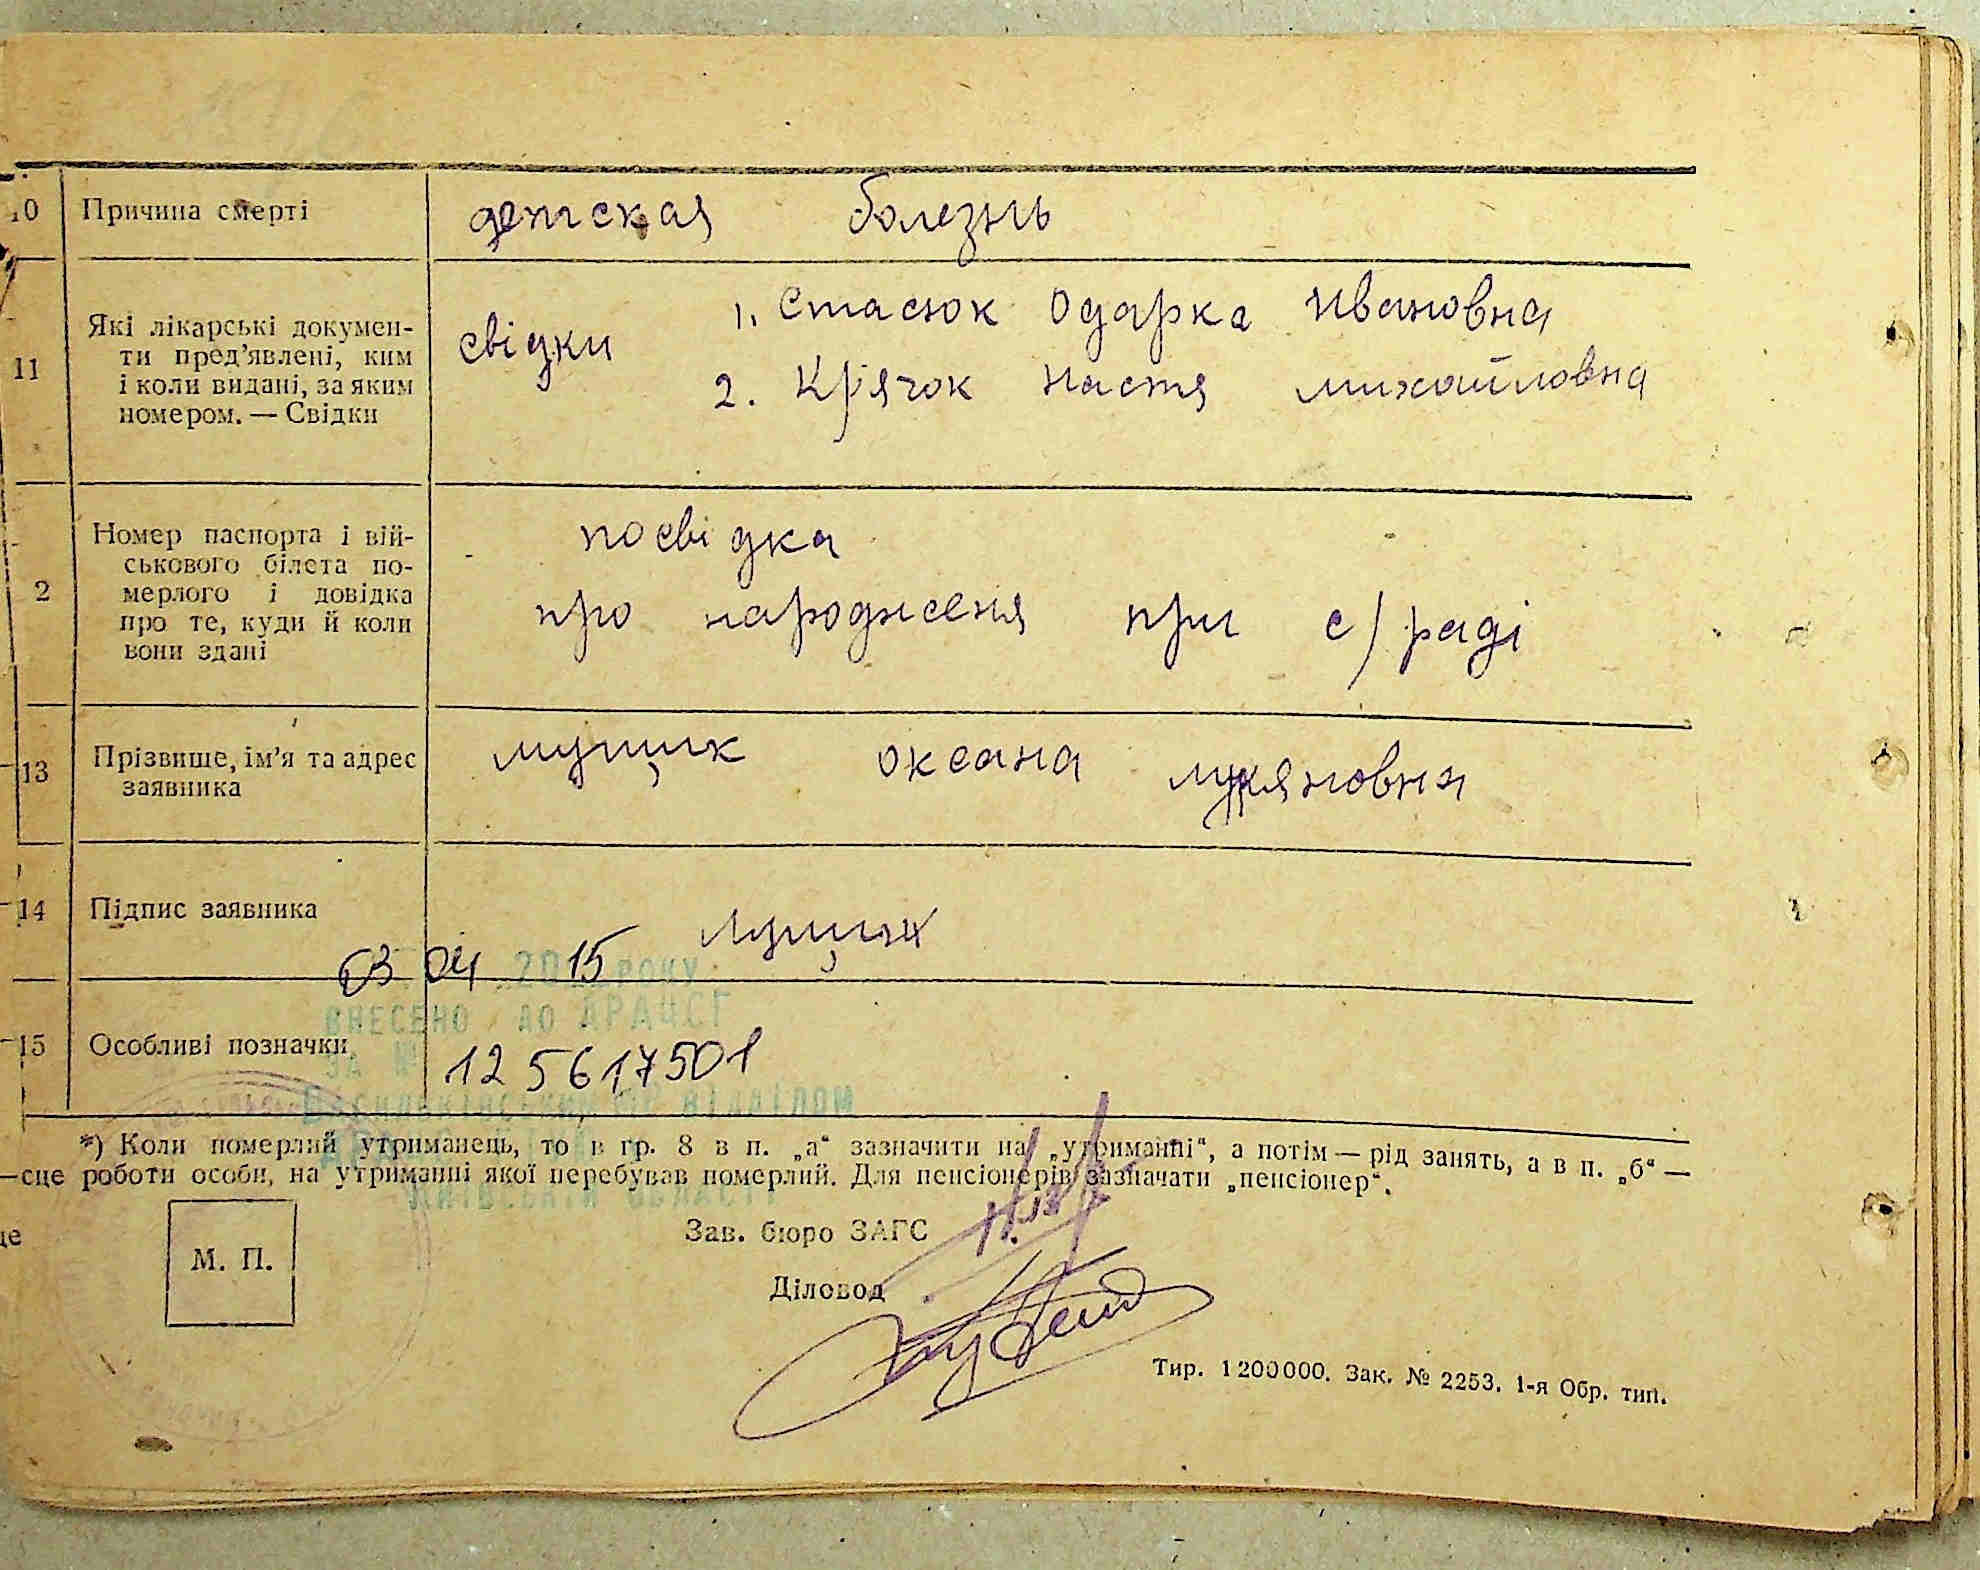 10 Причина смерті детская болезнь
11 Які лікарські докумен-
ти пред'явлені, ким
і коли видані, за яким
номером. — Свідки
свідки 1. Стасюк Одарка Ивановна
2. Крячок Настя михайловна
2 Номер паспорта і вій-
ського білета по-
мерлого і довідка
про те, куди й коли
вони здані
посвідка
про народженя при с/раді
13 Прізвише, ім'я та адрес
заявника
мущик оксана
14 Підпис заявника мущик
03 04 2015 РОКУ
ВНЕСЕНО ДО ДРАЦСГ
15 Особливі позначки
ЗА № 125617501
Васильківським РВ відділом
*) Коли померлий утриманець, то в гр. 8 в п. „а“ зазначити на „утриманні“, а потім — рід занять, а в п. „б“ —
сце роботи особи, на утриманні якої перебував померлий. Для пенсіонерів зазначати „пенсіонер“.
КИЇВСЬКОЇ ОБЛАСТІ
Зав. бюро ЗАГС
М. П.
Діловод
Тир. 1200000. Зак. № 2253. 1-я Обр. тип.